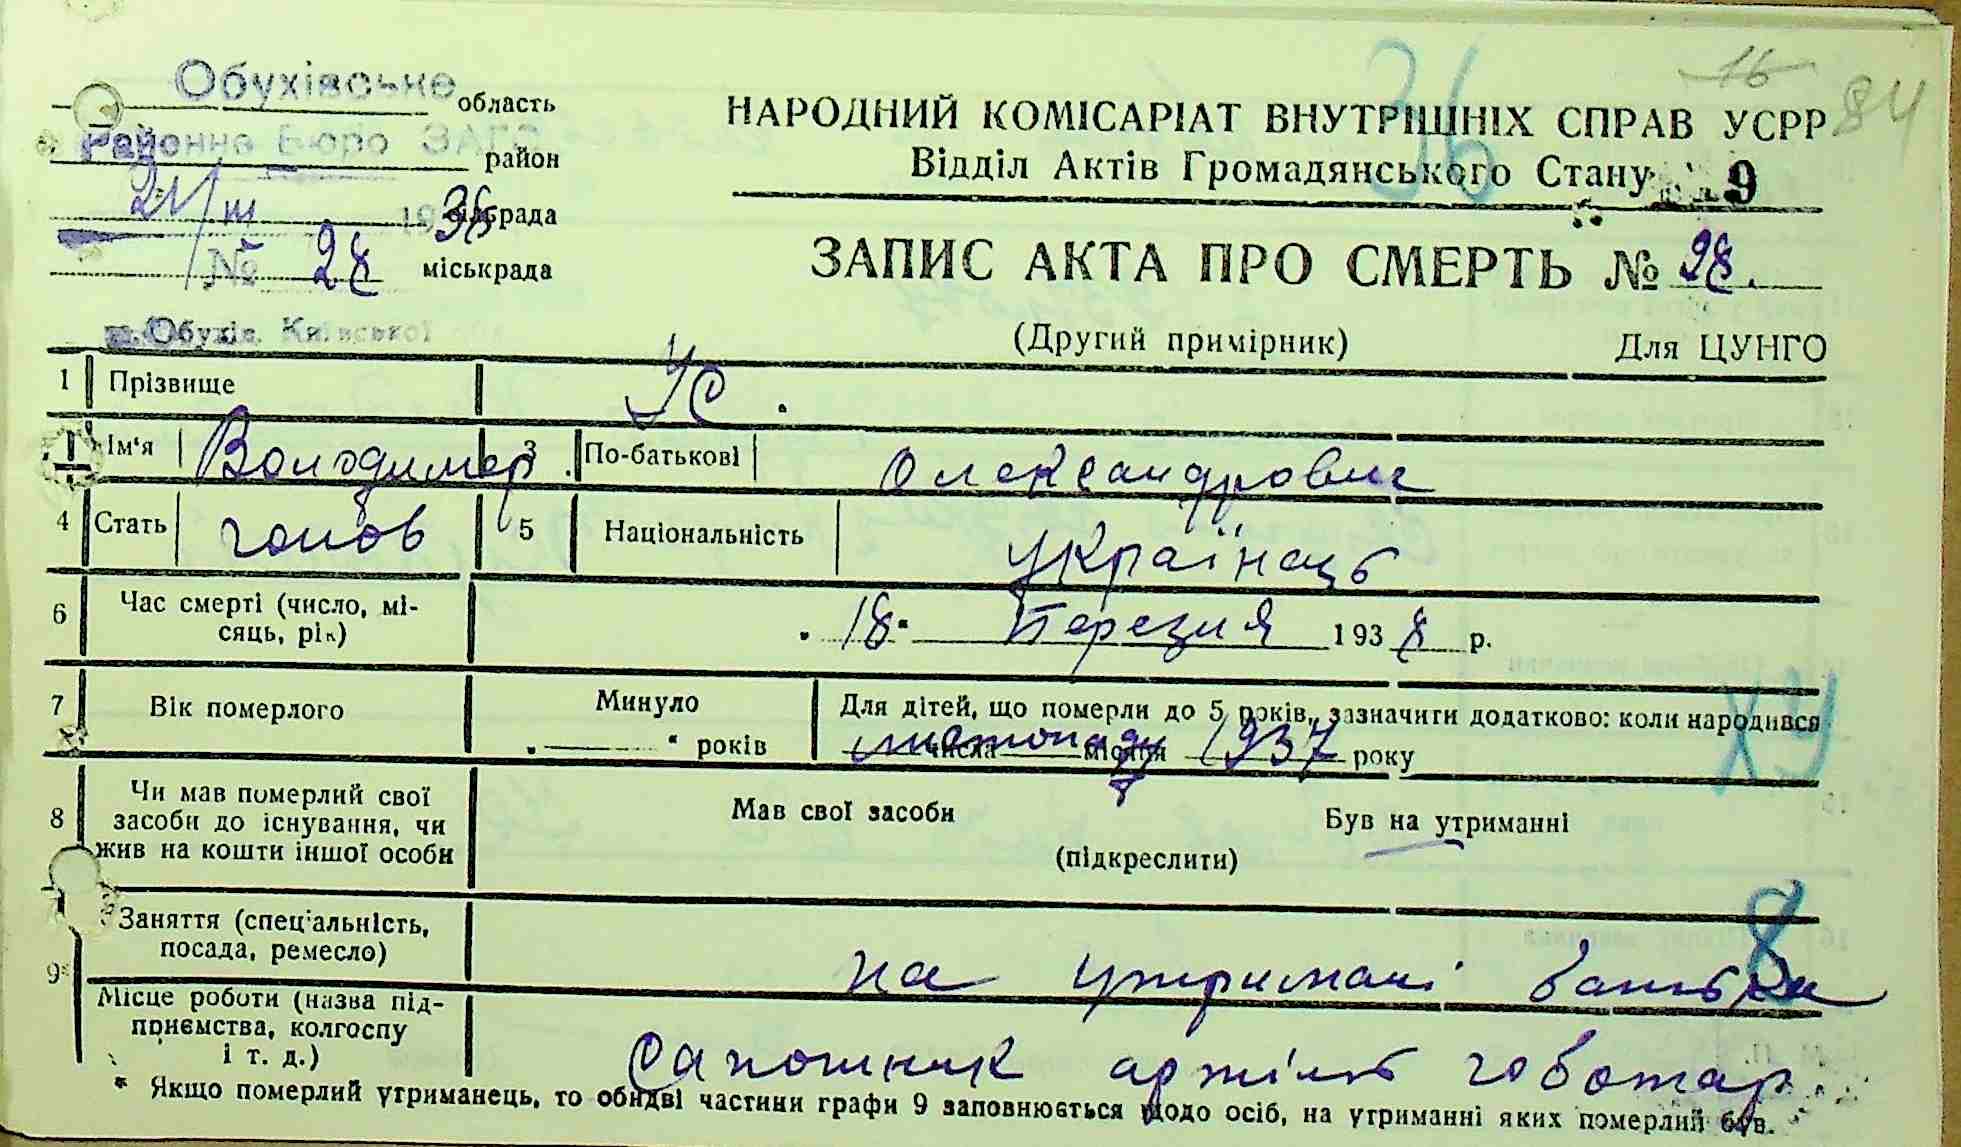 36
16
84
Обухівське область
Районне Бюро ЗАГС район
21/III 1938 сільрада
№ 28 міськрада
м. Обухів, Київської
НАРОДНИЙ КОМІСАРІАТ ВНУТРІШНІХ СПРАВ УСРР
Відділ Актів Громадянського Стану 9
ЗАПИС АКТА ПРО СМЕРТЬ № 28.
(Другий примірник) Для ЦУНГО
1 Прізвище Ус.
Ім'я Володимер 3 По-батькові Олександрович
4 Стать чолов 5 Національність українець
6 Час смерті (число, мі-
сяць, рік) 18 Березня 1938 р.
7 Вік померлого Минуло — років Для дітей, що померли до 5 років, зазначити додатково: коли народився
числа листопаду місяця 1937 року
8 Чи мав померлий свої
засоби до існування, чи
жив на кошти іншої особи
Мав свої засоби Був на утриманні
(підкреслити)
8
9* Заняття (спеціальність,
посада, ремесло) на утримані батька
Місце роботи (назва під-
приємства, колгоспу
і т. д.) Сапошник артіль чоботар
* Якщо померлий утриманець, то обидві частини графи 9 заповнюється щодо осіб, на утриманні яких померлий був.